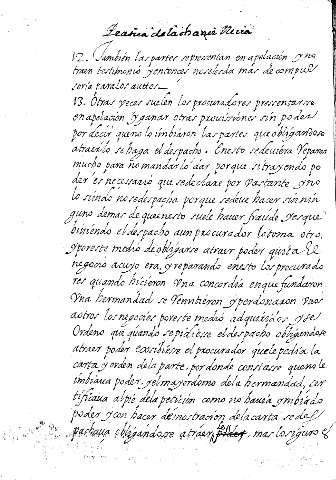 12. También las partes se presentan en apelación y no
traen testimonio y entonces no se les da mas de compul
soria para los autos.
13. Otras veces suelen los procuradores pressentarse
en apelación y ganar otras provissiones sin poder
por decir que no lo imbiaron las partes que obligandose
atraerlo se haga el despacho. en esto se deviera reparar
mucho para no mandarlo dar porque si trayendo po
der es necesario que se declare por vastante y no
lo siendo no se despacha porque se deve hacer sin nin
guno demas de que en esto suele haver fraude, y es que
viniendo el despacho a un procurador lo toma otro,
y por este medio de obligarse atraer poder quita el
negocio a cuyo era, y reparando en esto los procurado
res quando hicieron una concordia en que fundaron
una hermandad se remitieron y perdonaron unos
a otros los negocios por este medio adquiridos y se
Ordeno que quando se pidiese el despacho obligandose
atraer poder exsibiese el procurador que le pedia la
carta y orden de la parte, por donde constasse que no le
imbiava poder, y el mayordomo de la hermandad, cer
tificava al pie de la petición como no havia imbiado
poder y con hacer demostracion de la carta se des
pachava obligandose atraer poder, mas lo seguro es